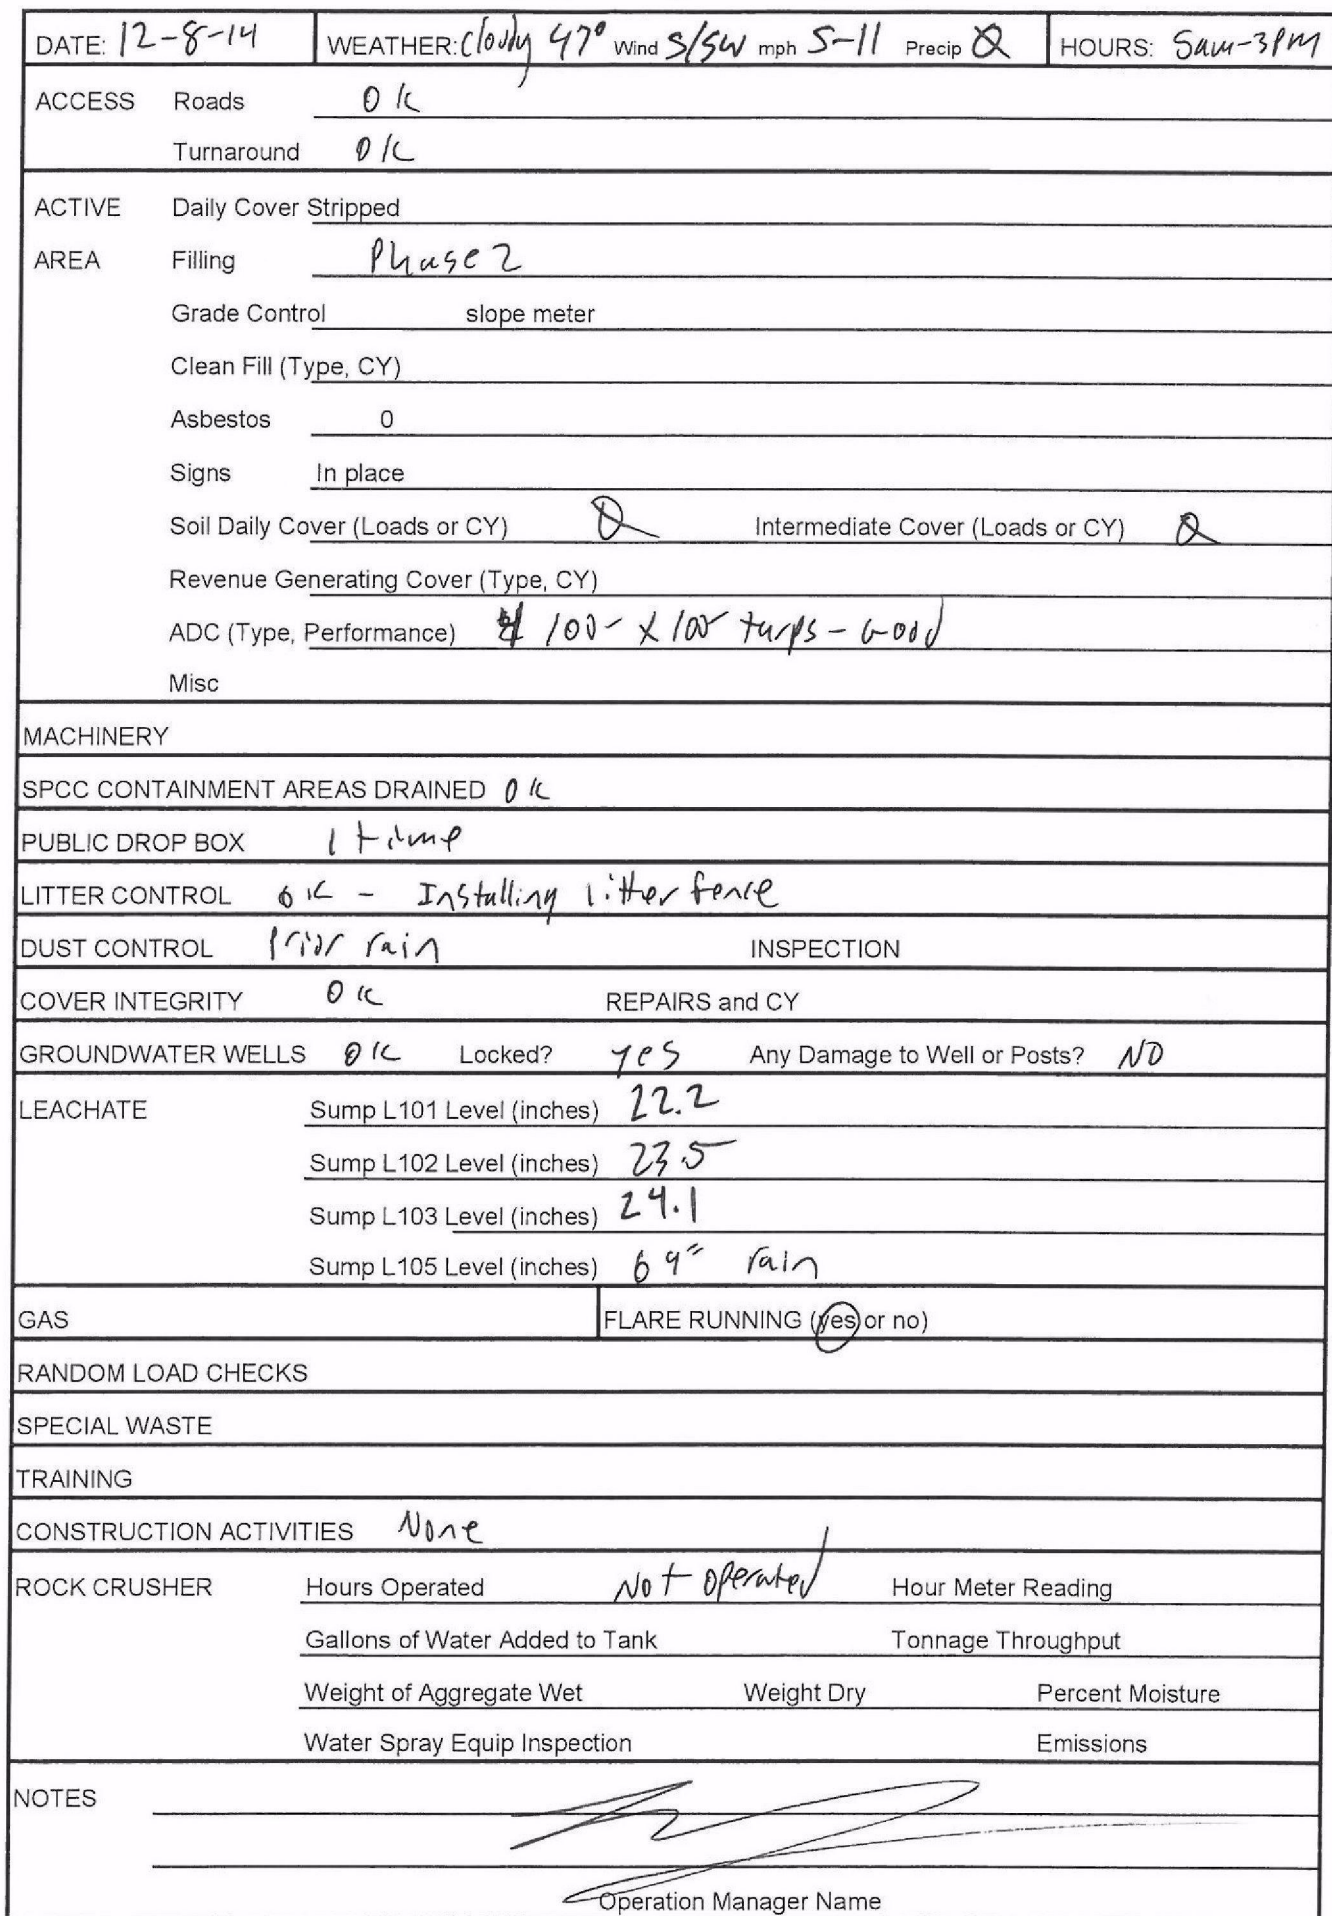 DATE: 12-8-14 WEATHER: Cloudy 47° Wind S/SW mph 5-11 Precip 0 HOURS: 5am-3PM
ACCESS Roads OK
Turnaround OK
ACTIVE Daily Cover Stripped
AREA Filling Phase 2
Grade Control slope meter
Clean Fill (Type, CY)
Asbestos 0
Signs In place
Soil Daily Cover (Loads or CY) 0 Intermediate Cover (Loads or CY) 0
Revenue Generating Cover (Type, CY)
ADC (Type, Performance) 100 x 100 tarps - Good
Misc
MACHINERY
SPCC CONTAINMENT AREAS DRAINED OK
PUBLIC DROP BOX 1 time
LITTER CONTROL OK - Installing litter fence
DUST CONTROL Prior rain INSPECTION
COVER INTEGRITY OK REPAIRS and CY
GROUNDWATER WELLS OK Locked? yes Any Damage to Well or Posts? NO
LEACHATE Sump L101 Level (inches) 22.2
Sump L102 Level (inches) 23.5
Sump L103 Level (inches) 24.1
Sump L105 Level (inches) 69" rain
GAS FLARE RUNNING (yes or no)
RANDOM LOAD CHECKS
SPECIAL WASTE
TRAINING
CONSTRUCTION ACTIVITIES None
ROCK CRUSHER Hours Operated Not operated Hour Meter Reading
Gallons of Water Added to Tank Tonnage Throughput
Weight of Aggregate Wet Weight Dry Percent Moisture
Water Spray Equip Inspection Emissions
NOTES
Operation Manager Name